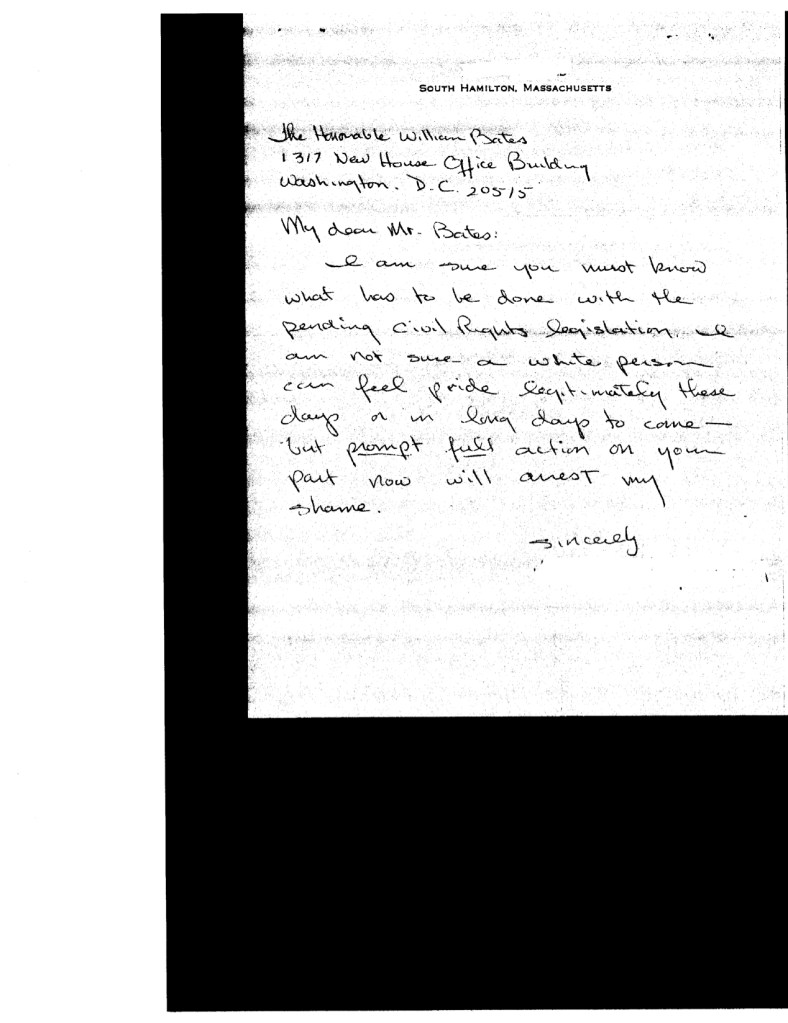 SOUTH HAMILTON, MASSACHUSETTS
The Honorable William Bates
1317 New House Office Building
Washington. D.C. 20515
My dear Mr. Bates:
I am sure you must know
what has to be done with the
pending Civil Rights legislation. I
am not sure a white person
can feel pride legitimately these
days or in long days to come—
but prompt full action on your
part now will arrest my
shame.
Sincerely